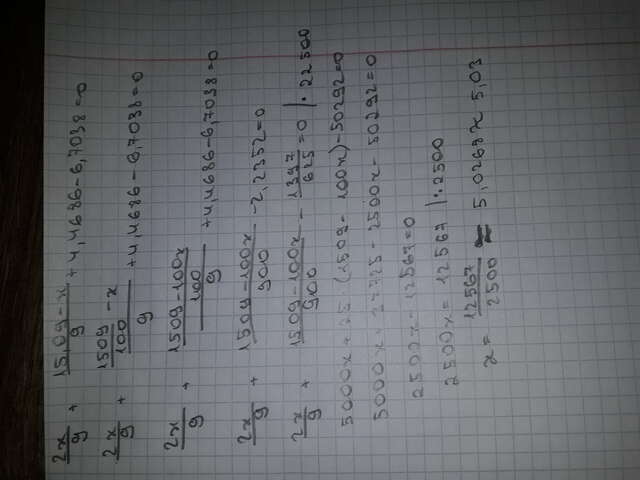 2x/9 + 15,09-x/9 + 4,4686-6,7038=0
2x/9 + 1509/100 -x/9 +4,4686-6,7038=0
2x/9 + 1509-100x/100/9 +4,4686-6,7038=0
2x/9 + 1509-100x/900 -2,2352=0
2x/9 + 1509-100x/900 - 1397/625 =0 |·22500
5000x+25 (1509-100x)-50292=0
5000x+37725-2500x-50292=0
2500x-12567=0
2500x=12567 |:2500
x= 12567/2500 ≈ 5,0268≈ 5,03